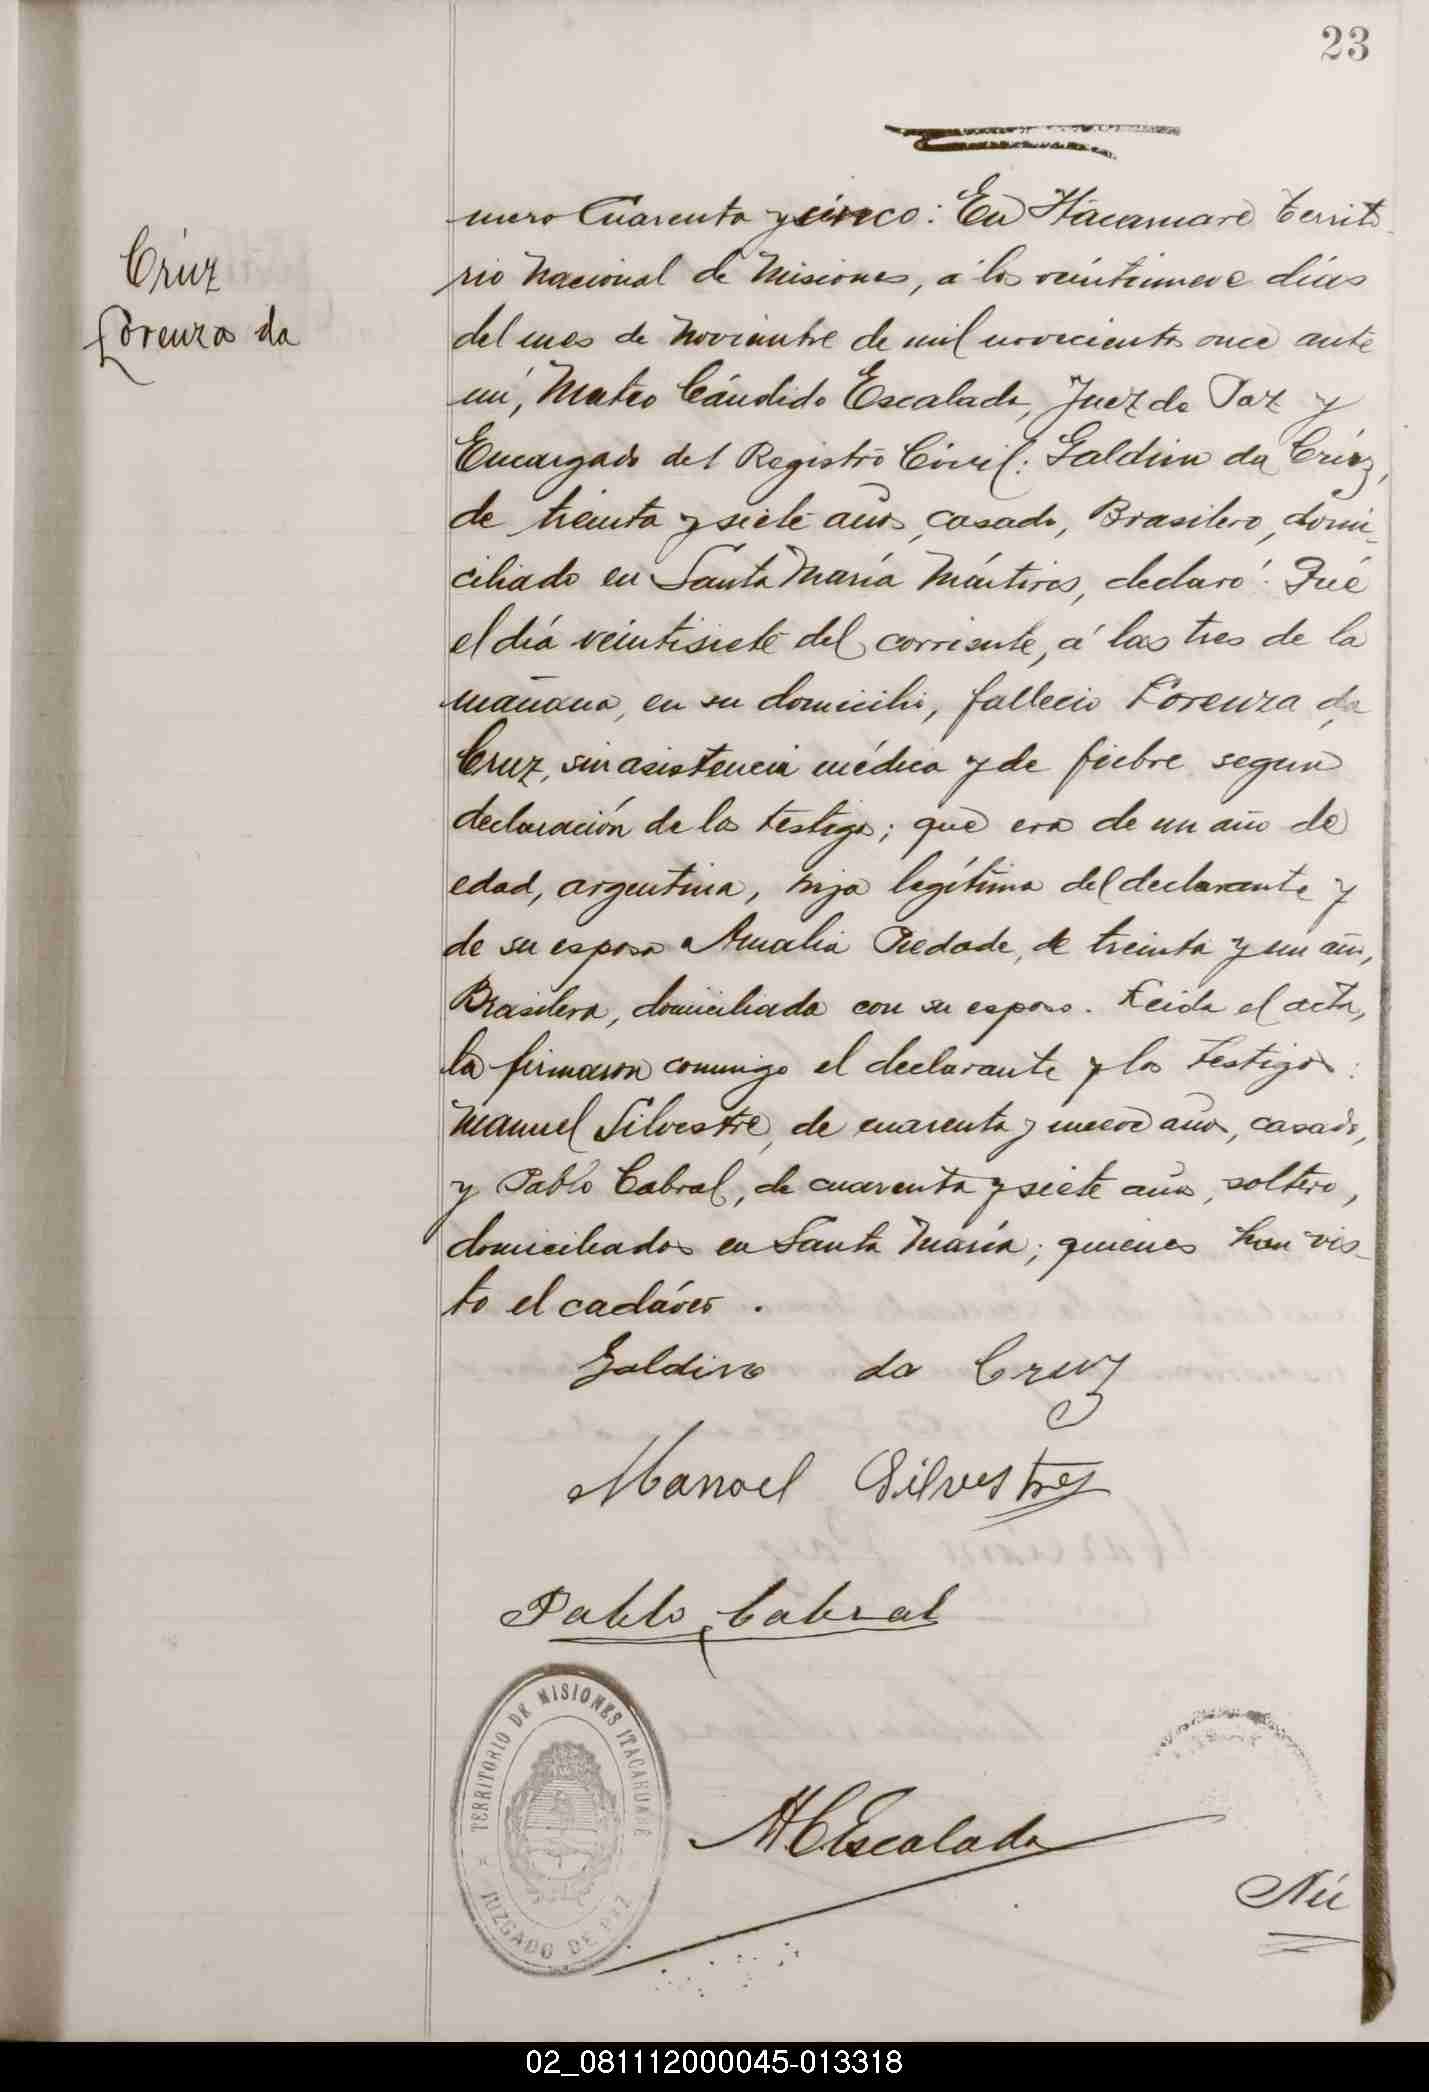 23
Crúz
Lorenza da
mero Cuarenta y cinco: En Itacaruaré Territo-
rio Nacional de Misiones, á los veintinueve días
del mes de Noviembre de mil novecientos once ante
mí, Mateo Cándido Escalada, Juez de Paz y
Encargado del Registro Civil: Galdino da Crúz,
de treinta y siete años, casado, Brasilero, domi-
ciliado en Santa María Mártires, declaró: Que
el día veintisiete del corriente, á las tres de la
mañana, en su domicilio, falleció Lorenza da
Cruz, sin asistencia médica y de fiebre segun
declaración de los testigos; que era de un año de
edad, argentina, hija legítima del declarante y
de su esposa Amalia Piedade, de treinta y un años,
Brasilera, domiciliada con su esposo. Leida el acta,
la firmaron conmigo el declarante y los testigos:
Manuel Silvestre, de cuarenta y nueve años, casado,
y Pablo Cabral, de cuarenta y siete años, soltero,
domiciliados en Santa María; quienes han vis-
to el cadáver.
Galdino da Cruz
Manoel Silvestres
Pablo Cabral
TERRITORIO DE MISIONES ITACARUARÉ
JUZGADO DE PAZ
MCEscalada
Nú
02_081112000045-013318